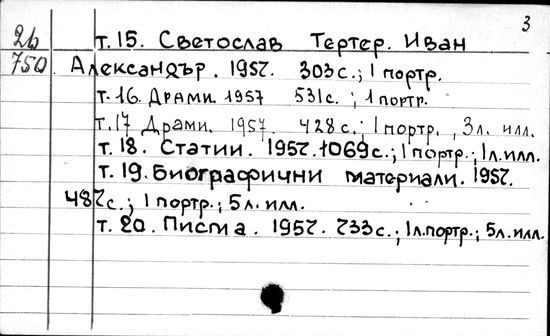 3
2б т.15. Светослав Тертер. Иван
750 Александър. 1957. 303с.; 1 портр.
т.16. Драми. 1957 531с. ; 1 портр.
т.17 Драми. 1957. 428с.; 1 портр. , 3л. илл.
т.18. Статии. 1957. 1069с.; 1 портр.; 1л. илл.
т.19. Биографични материали. 1957.
487с.; 1 портр.; 5л. илл.
т.20. Писма. 1957. 733с.; 1л. портр.; 5л. илл.